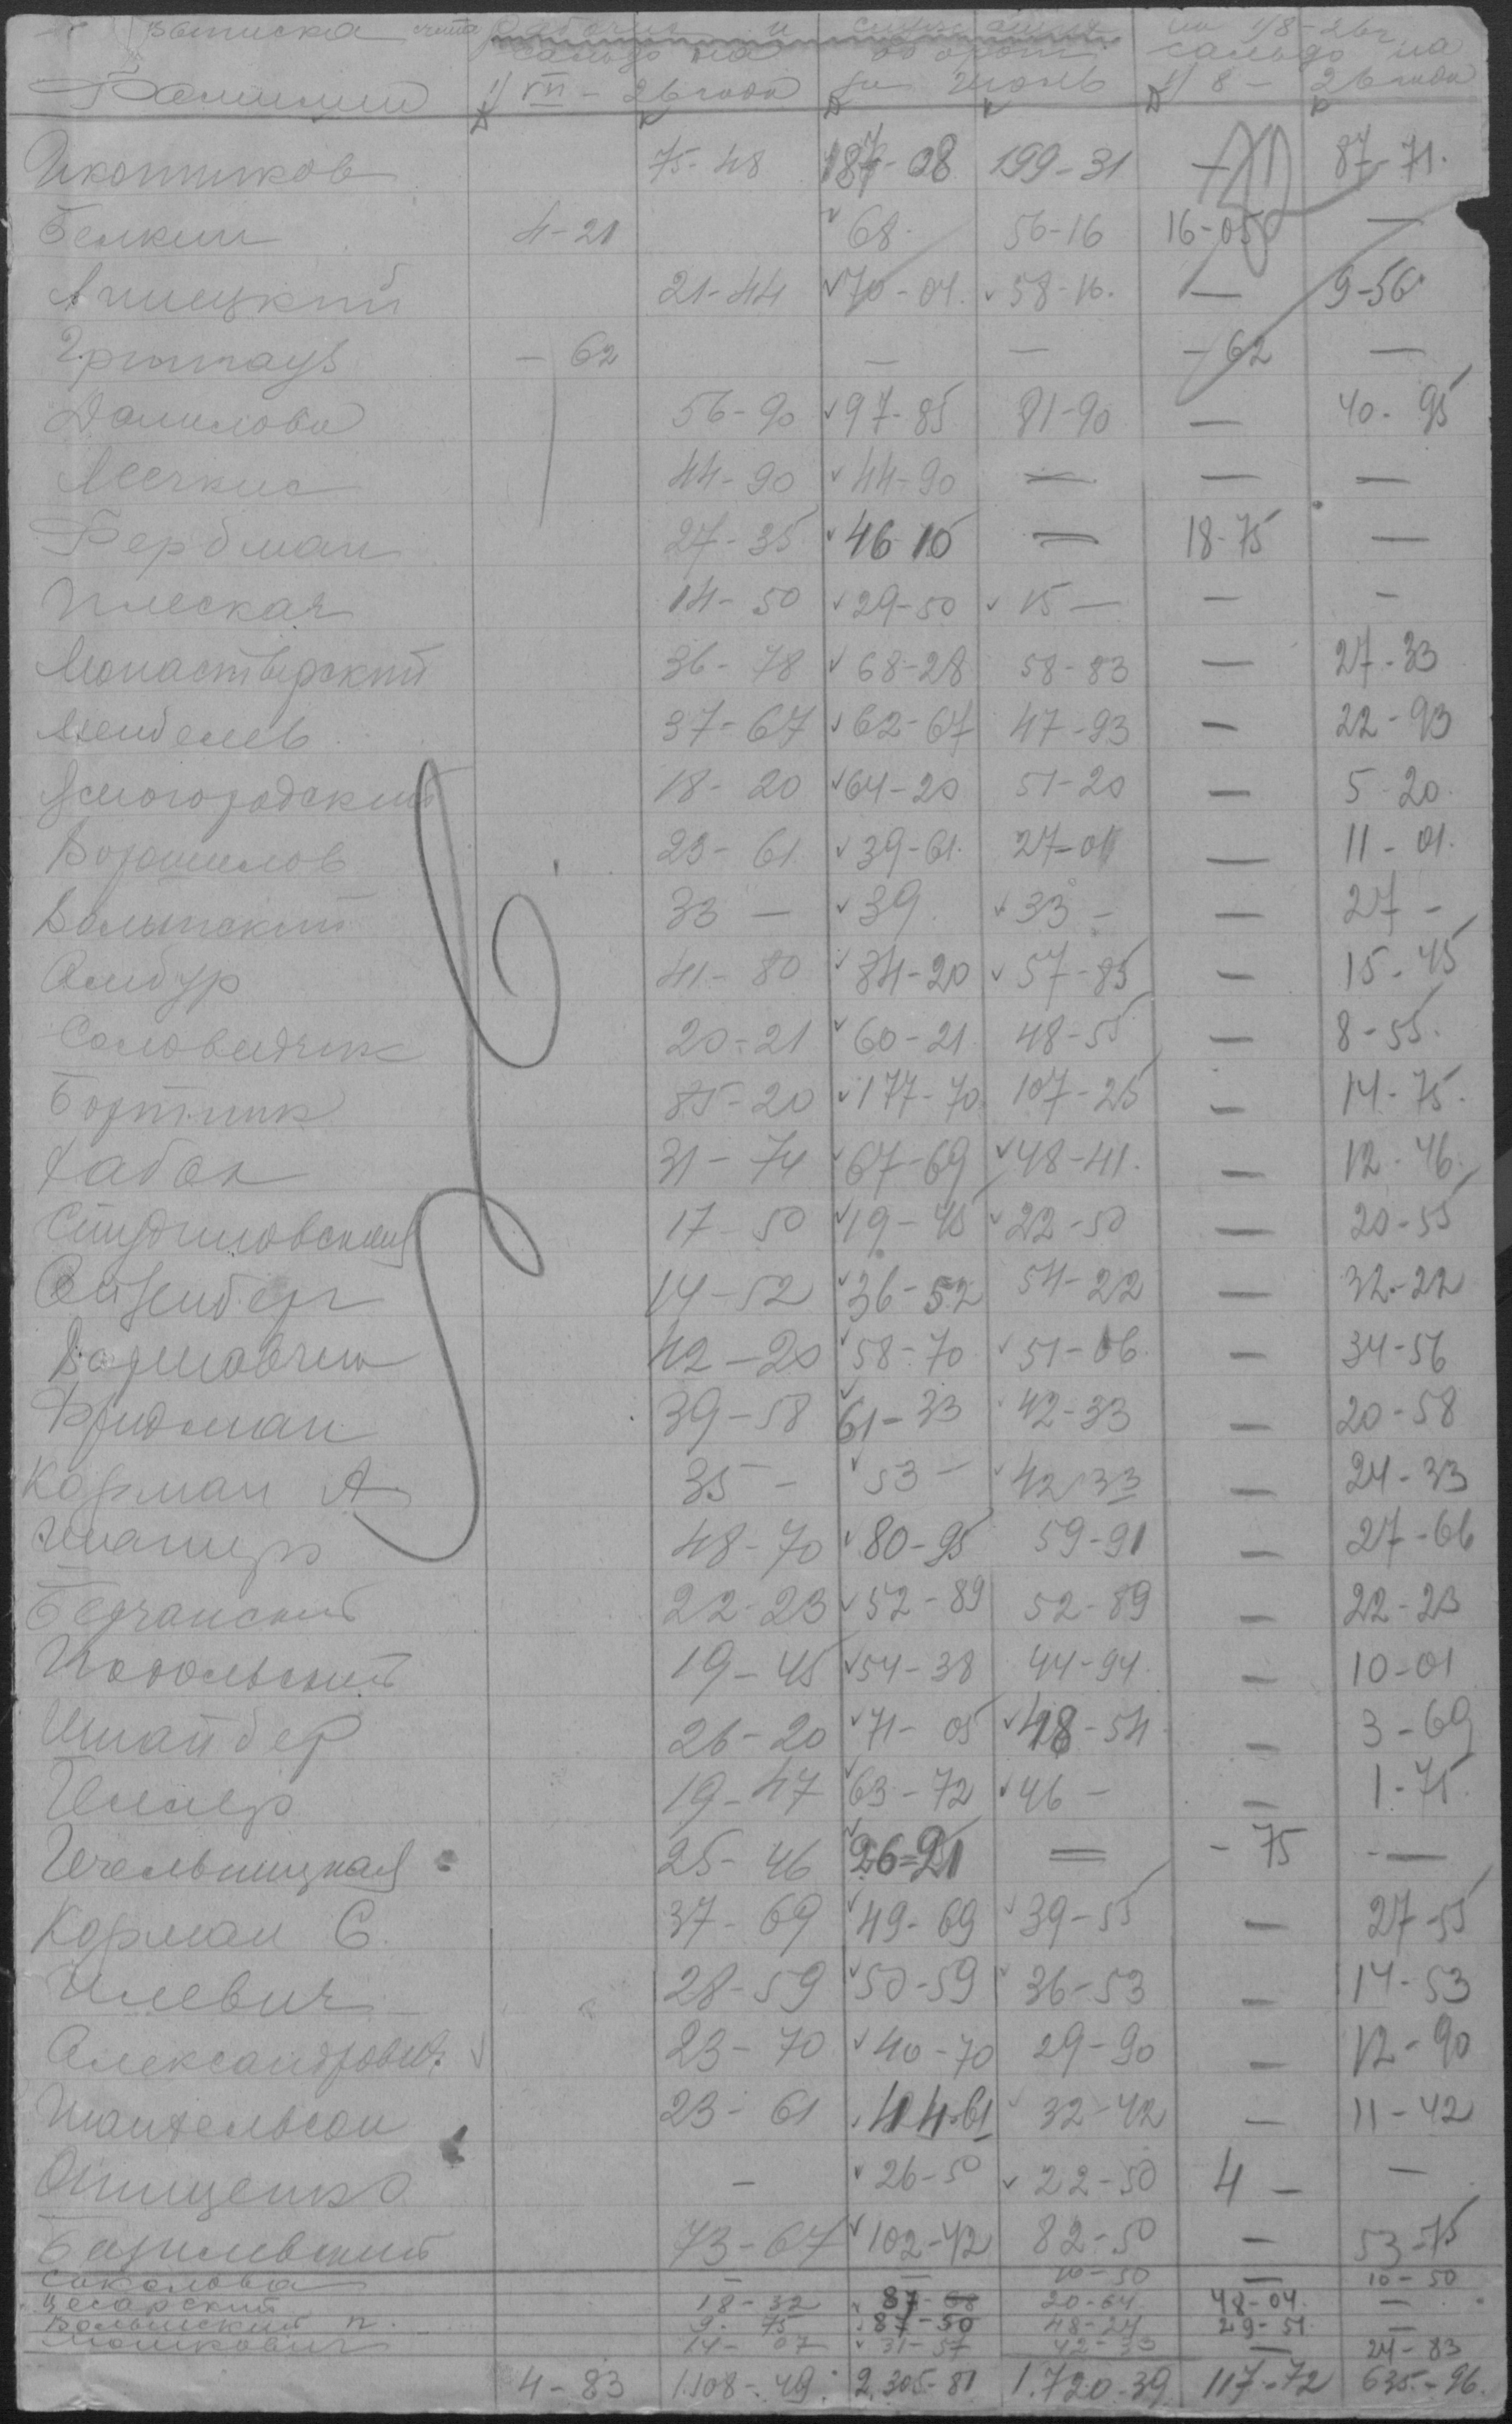 Выписка счета рабочих и служащих на 1/8-26г
сальдо на оборот сальдо на
Фамилии 1/VII - 26 года за Июль 1/8 - 26 года
Д К Д К Д К
Икотников 75-48 187-08 199-31 — 87-71
Белкин 4-21 68 56-16 16-05 —
21-44 70-04 58-16 — 9-56
- 62 — — - 62 —
Данилова 56-90 97-85 81-90 — 40-95
44-90 44-90 — — —
Фербман 27-35 46-10 — 18-75 —
Плескач 14-50 29-50 15 — — -
Монастырский 36-78 68-28 58-83 — 27-33
Менделев 37-67 62-67 47-93 — 22-93
18-20 64-20 51-20 — 5-20
Ворошилов 23-61 39-61 27-01 — 11-01
Волынский 33 — 39 33 - — 27 -
Амбур 41-80 84-20 57-85 — 15-45
Соловейчик 20-21 60-21 48-55 — 8-55
Бортник 85-20 177-70 107-25 — 14-75
Хабак 31-74 67-69 48-41 — 12-46
17-50 19-45 22-50 — 20-55
Айзенберг 14-52 36-52 54-22 — 32-22
42-20 58-70 51-06 — 34-56
Фридман 39-58 61-33 42-33 — 20-58
Корман А 35 - 53 - 42-33 — 24-33
Шапиро 48-70 80-95 59-91 — 27-66
22-23 52-89 52-89 — 22-23
Подольский 19-45 54-38 44-94 — 10-01
Шнайдер 26-20 71-05 48-54 — 3-69
19-47 63-72 46 - — 1-75
25-46 26-21 — - 75 —
Корман С. 37-69 49-69 39-55 — 27-55
Илевич 28-59 50-59 36-53 — 14-53
Александрович 23-70 40-70 29-90 — 12-90
23-61 44-61 32-42 — 11-42
Онищенко - 26-50 22-50 4 - —
Базилевский 73-67 102-42 82-50 — 53-75
Соколова — — 10-50 — 10-50
Цесарский 18-32 87- 20-64 48-04 —
Волынский П. 9-75 87-50 48-24 29-51 —
Мошкович 14-07 31-57 42-33 — 24-83
4-83 1.108-49 2.305-81 1.720-39 117-72 635-96